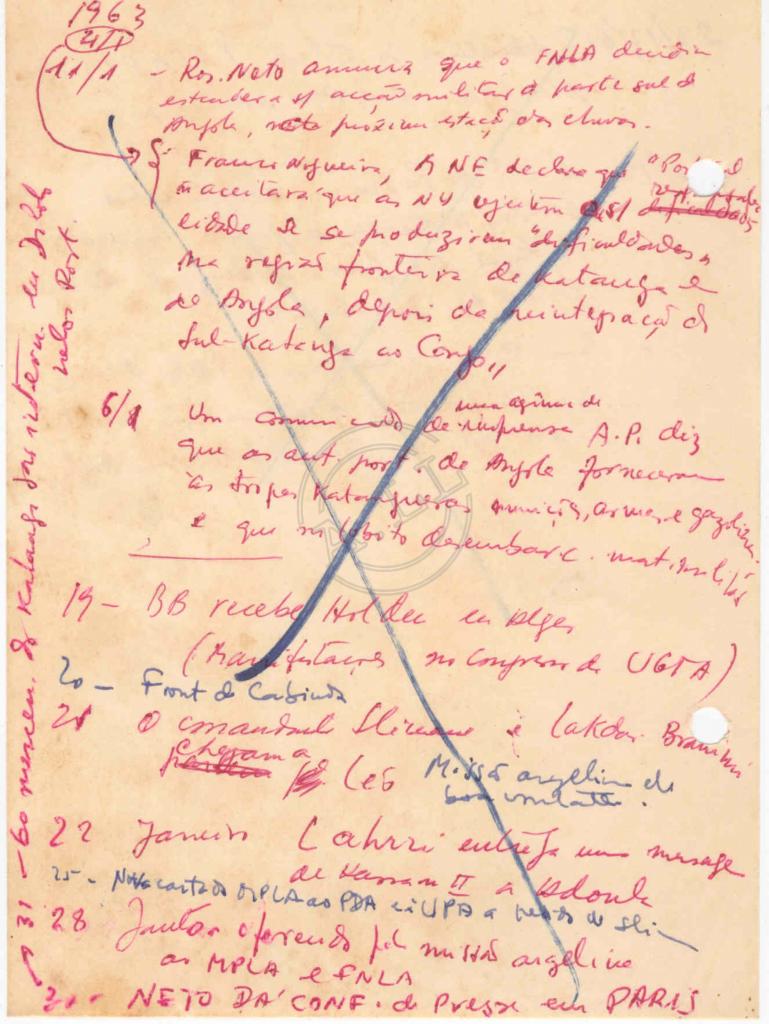 1963
4/1
11/1 - Ros. Neto anuncia que o FNLA decidiu
estender a s/ acção militar à parte sul de
Angola, nesta próxima estação das chuvas.
Franco Nogueira, MNE declara que "Portugal
ñ aceitará que as NU rejeitem s/
cidade se se produzirem "dificuldades"
na região fronteira de Katanga e
de Angola, depois da reintegração do
Sul-Katanga ao Congo"
6/1 Um comunicado de uma agência de imprensa A.P. diz
que as aut. port. de Angola forneceram
às tropas Katanguesas munições, armas e gazolina
e que no Lobito desembarc. mat.
19 - BB recebe Holden en Alger
(Manifestações no Congresso da UGTA)
20 - Front de Cabinda
21 O comandante Slimane e Lakdar Brahimi
chegam a Léo Missão argelina de
boa vontade.
22 Janeiro Lahrzi entrega uma message
de Hassan II a Adoula
25 - Nova carta do MPLA ao PDA e à UPA a
28 Jantar oferecido pela missão argelina
ao MPLA e FNLA
30 - NETO DÁ CONF. de Presse em PARIS
31 - 60 mercen. do Katanga são intern. em Dilolo
pelos Port.